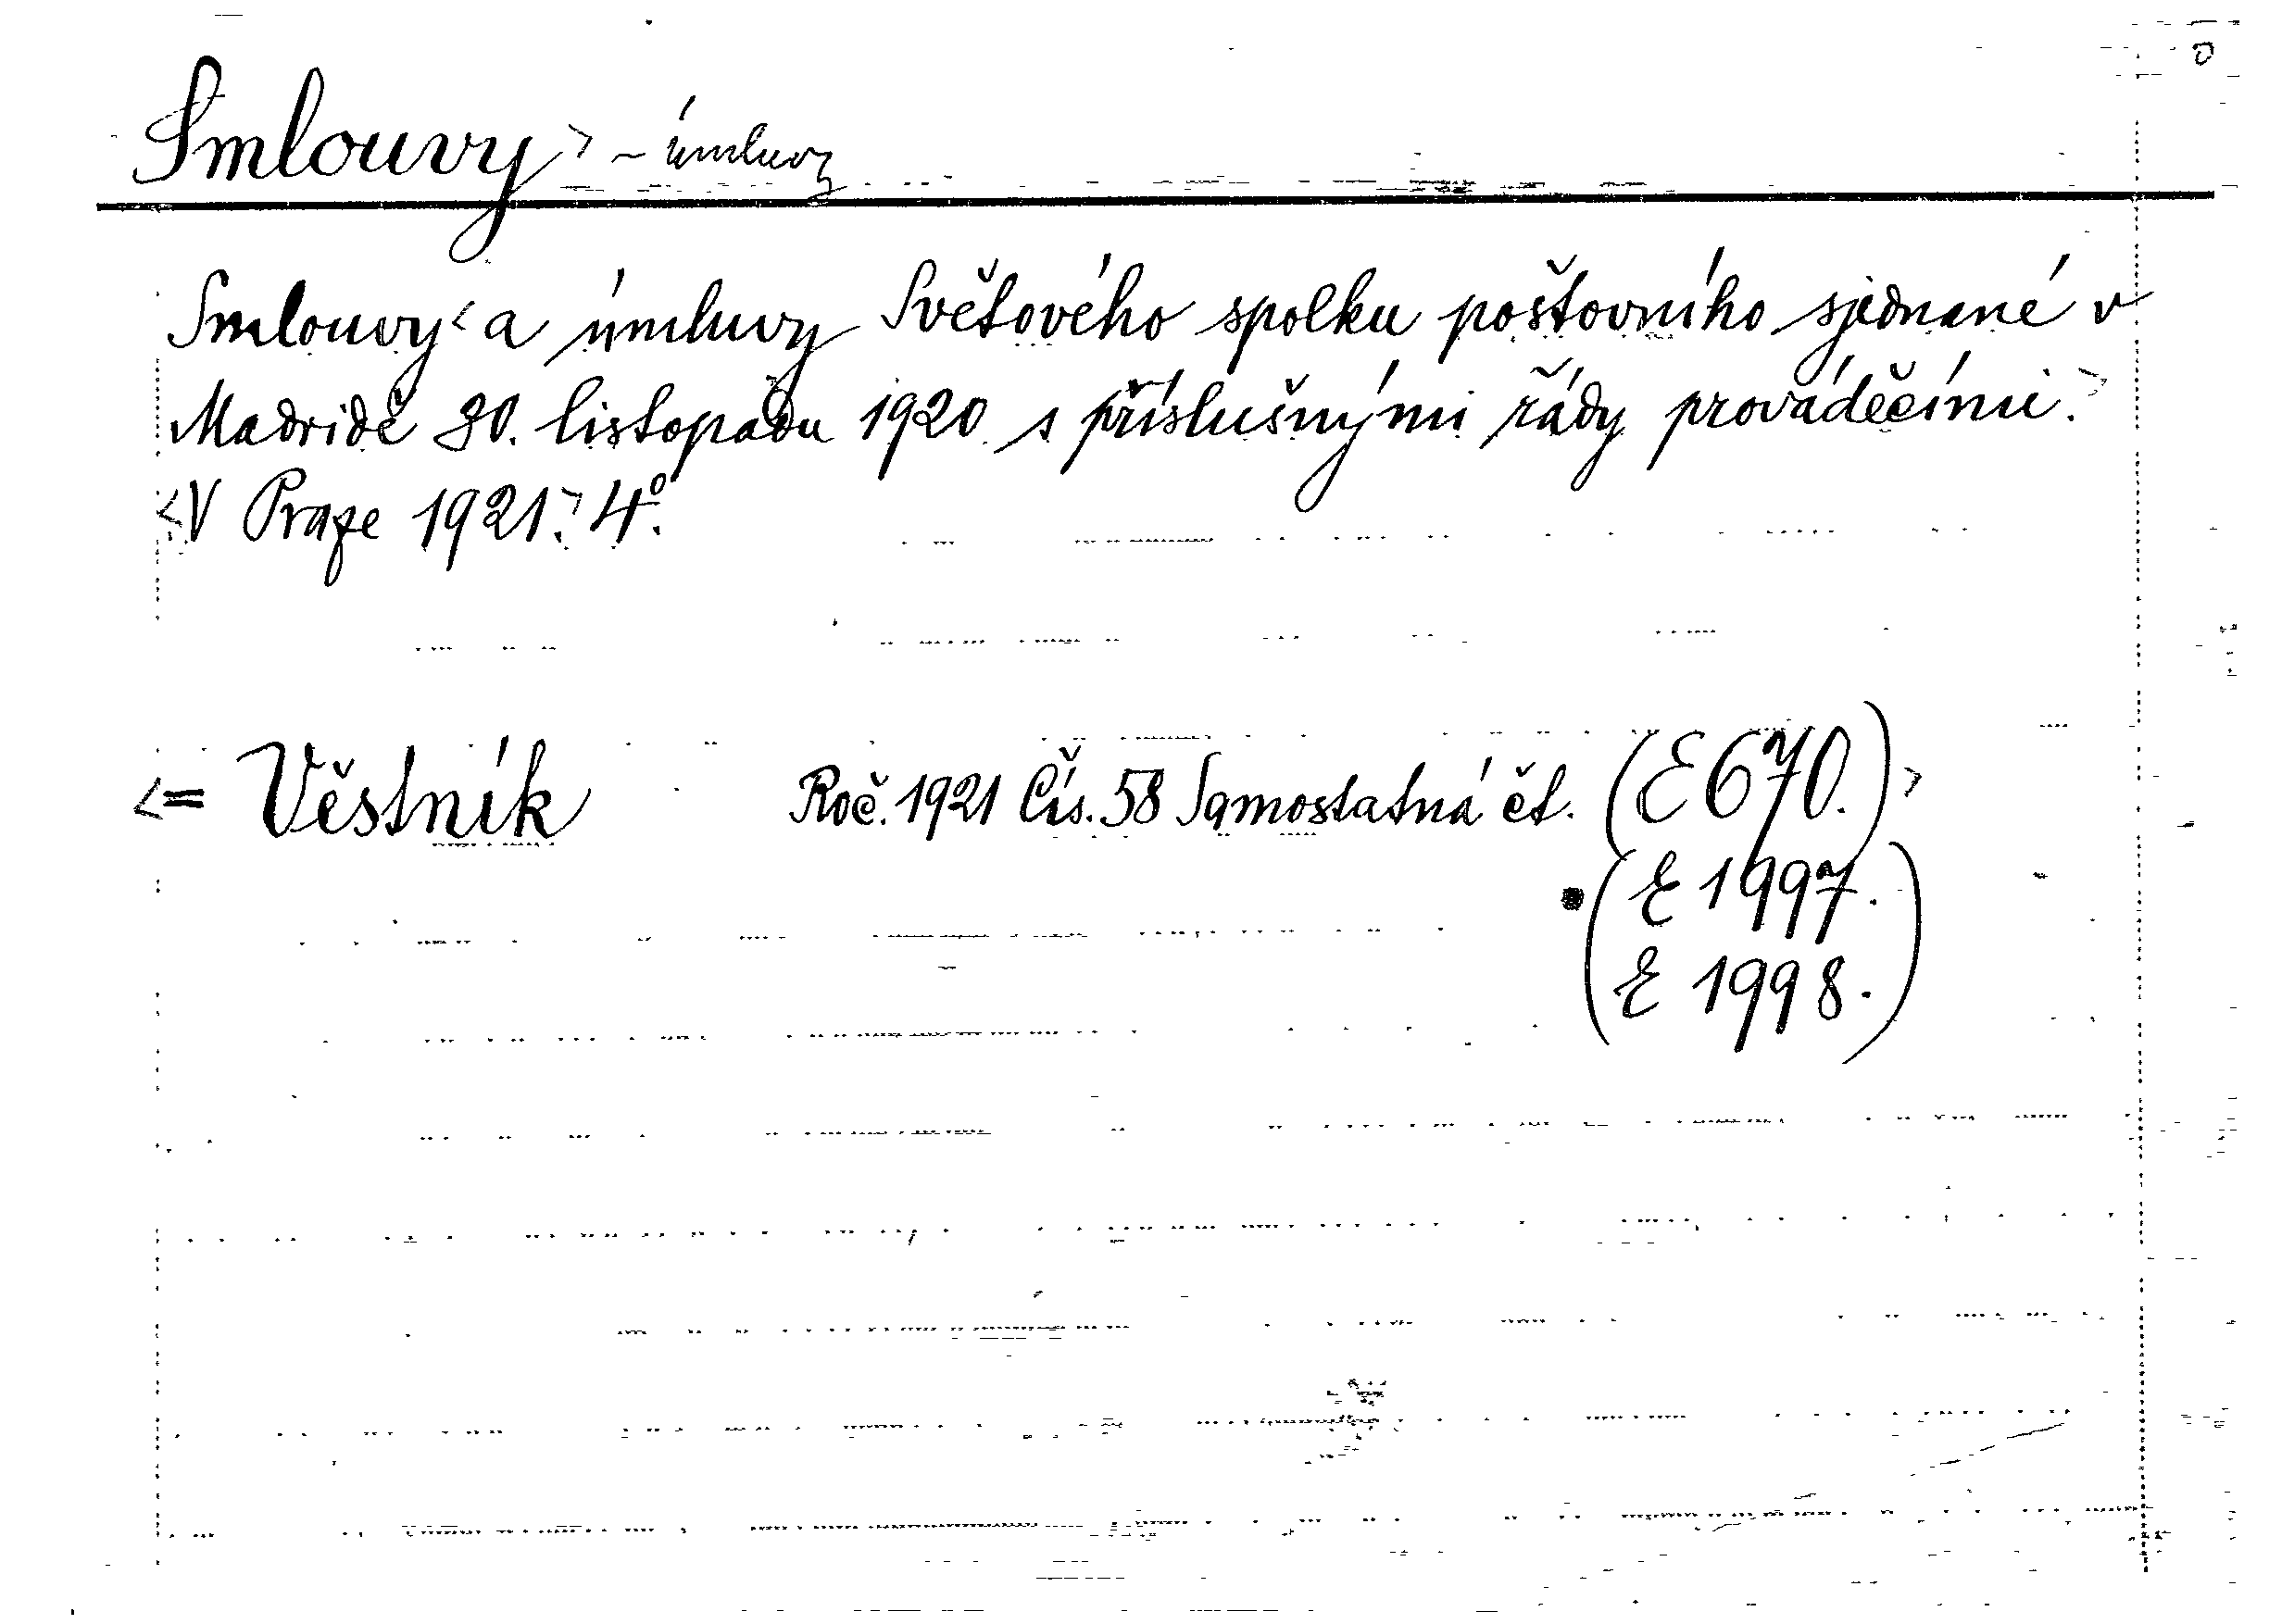 Smlouvy > ~ úmluvy
Smlouvy < a úmluvy Světového spolku poštovního sjednané v
Madridě 30. listopadu 1920 s příslušnými řády prováděcími. >
<V Praze 1921.> 4°.
<= Věstník Roč. 1921 Čís. 58 Samostatná čt. (E 670.)>
(E 1997.
E 1998.)